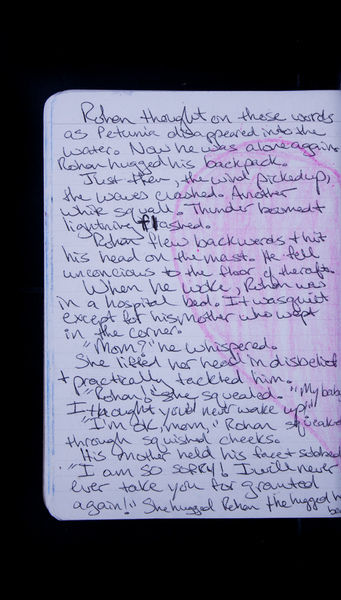 Rohan thought on these words
as Petunia disappeared into the
water. Now he was alone again.
Rohan hugged his backpack.
Just then, the wind picked up,
the waves crashed. Another
white squall. Thunder boomed +
lightning flashed.
Rohan flew backwards + hit
his head on the mast. He fell
unconcious to the floor of the raft.
When he woke, Rohan was
in a hospital bed. It was quiit
except for his mother who wept
in the corner.
"Mom?" he whispered.
She lifted her head in disbelief
+ practically tackled him.
"Rohan!" She squealed. "My baby
I thought you'd nevr wake up!"
"I'm OK, mom," Rohan squeaked
through squished cheeks.
His mother held his face + sobbed.
"I am SO SORRY! I will never
ever take you for granted
again!" She hugged Rohan + he hugged h